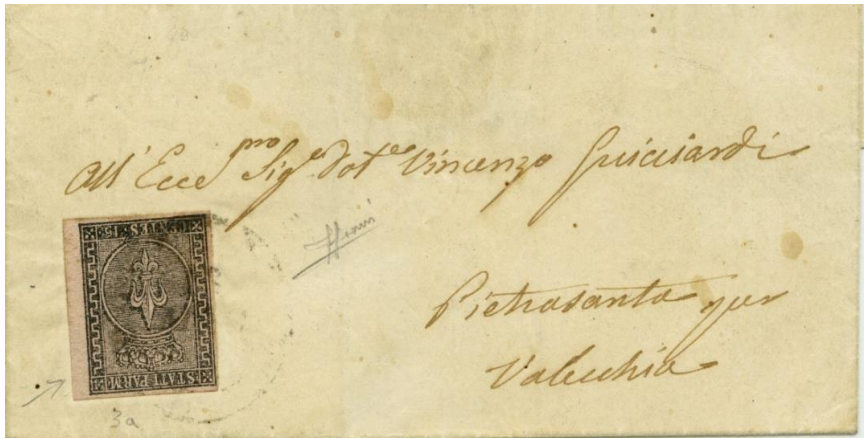 All' Ecc.mo Sig.e Dot.e Vincenzo Guicciardi
Pietrasanta per
Valecchia
CENTES. 15
STATI PARM.
3a